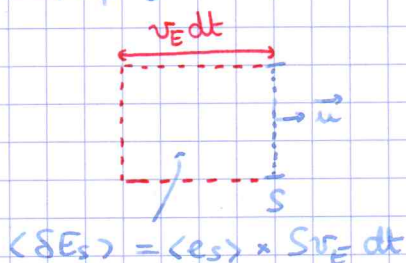 v_E dt
→ u⃗
S
<δE_S> = <e_S> × S v_E dt